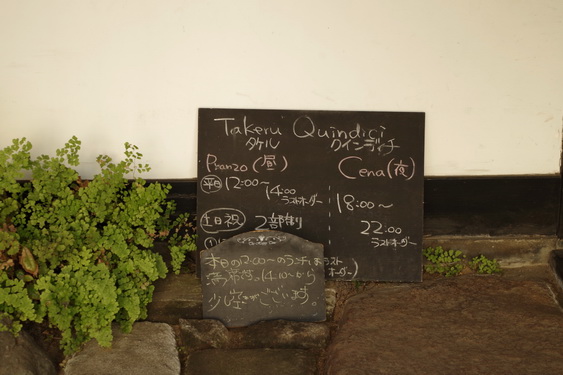 Takeru Quindici
タケル クインディチ
Pranzo(昼)
平日 12:00〜
14:00
ラストオーダー
土日祝 2部制
Cena(夜)
18:00〜
22:00
ラストオーダー
本日の12:00〜のランチは
満席です。14:00〜から
少し空きがございます。